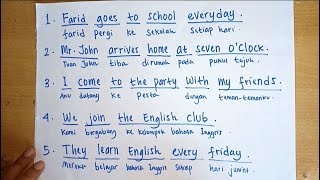 1. Farid goes to school everyday.
farid pergi ke sekolah setiap hari
2. Mr. John arrives home at seven o'clock.
Tuan John tiba dirumah pada pukul tujuh.
3. I come to the party with my friends.
Aku datang ke Pesta dengan teman-temanku.
4. We join the English club.
Kami bergabung ke kelompok bahasa Inggris
5. They learn English every friday.
Mereka belajar bahasa Inggris setiap hari jum'at.